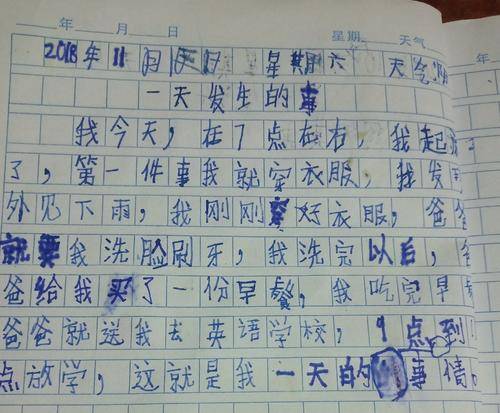 年 月 日 星期 天气
2018年11月 日 星期六 天气:
一天发生的事
我今天,在7点左右,我起
了,第一件事我就穿衣服,我发
外见下雨,我刚刚穿好衣服,爸
就要我洗脸刷牙,我洗完以后,
爸给我买了一份早餐,我吃完早
爸爸就送我去英语学校,9点到
点放学,这就是我一天的事情。